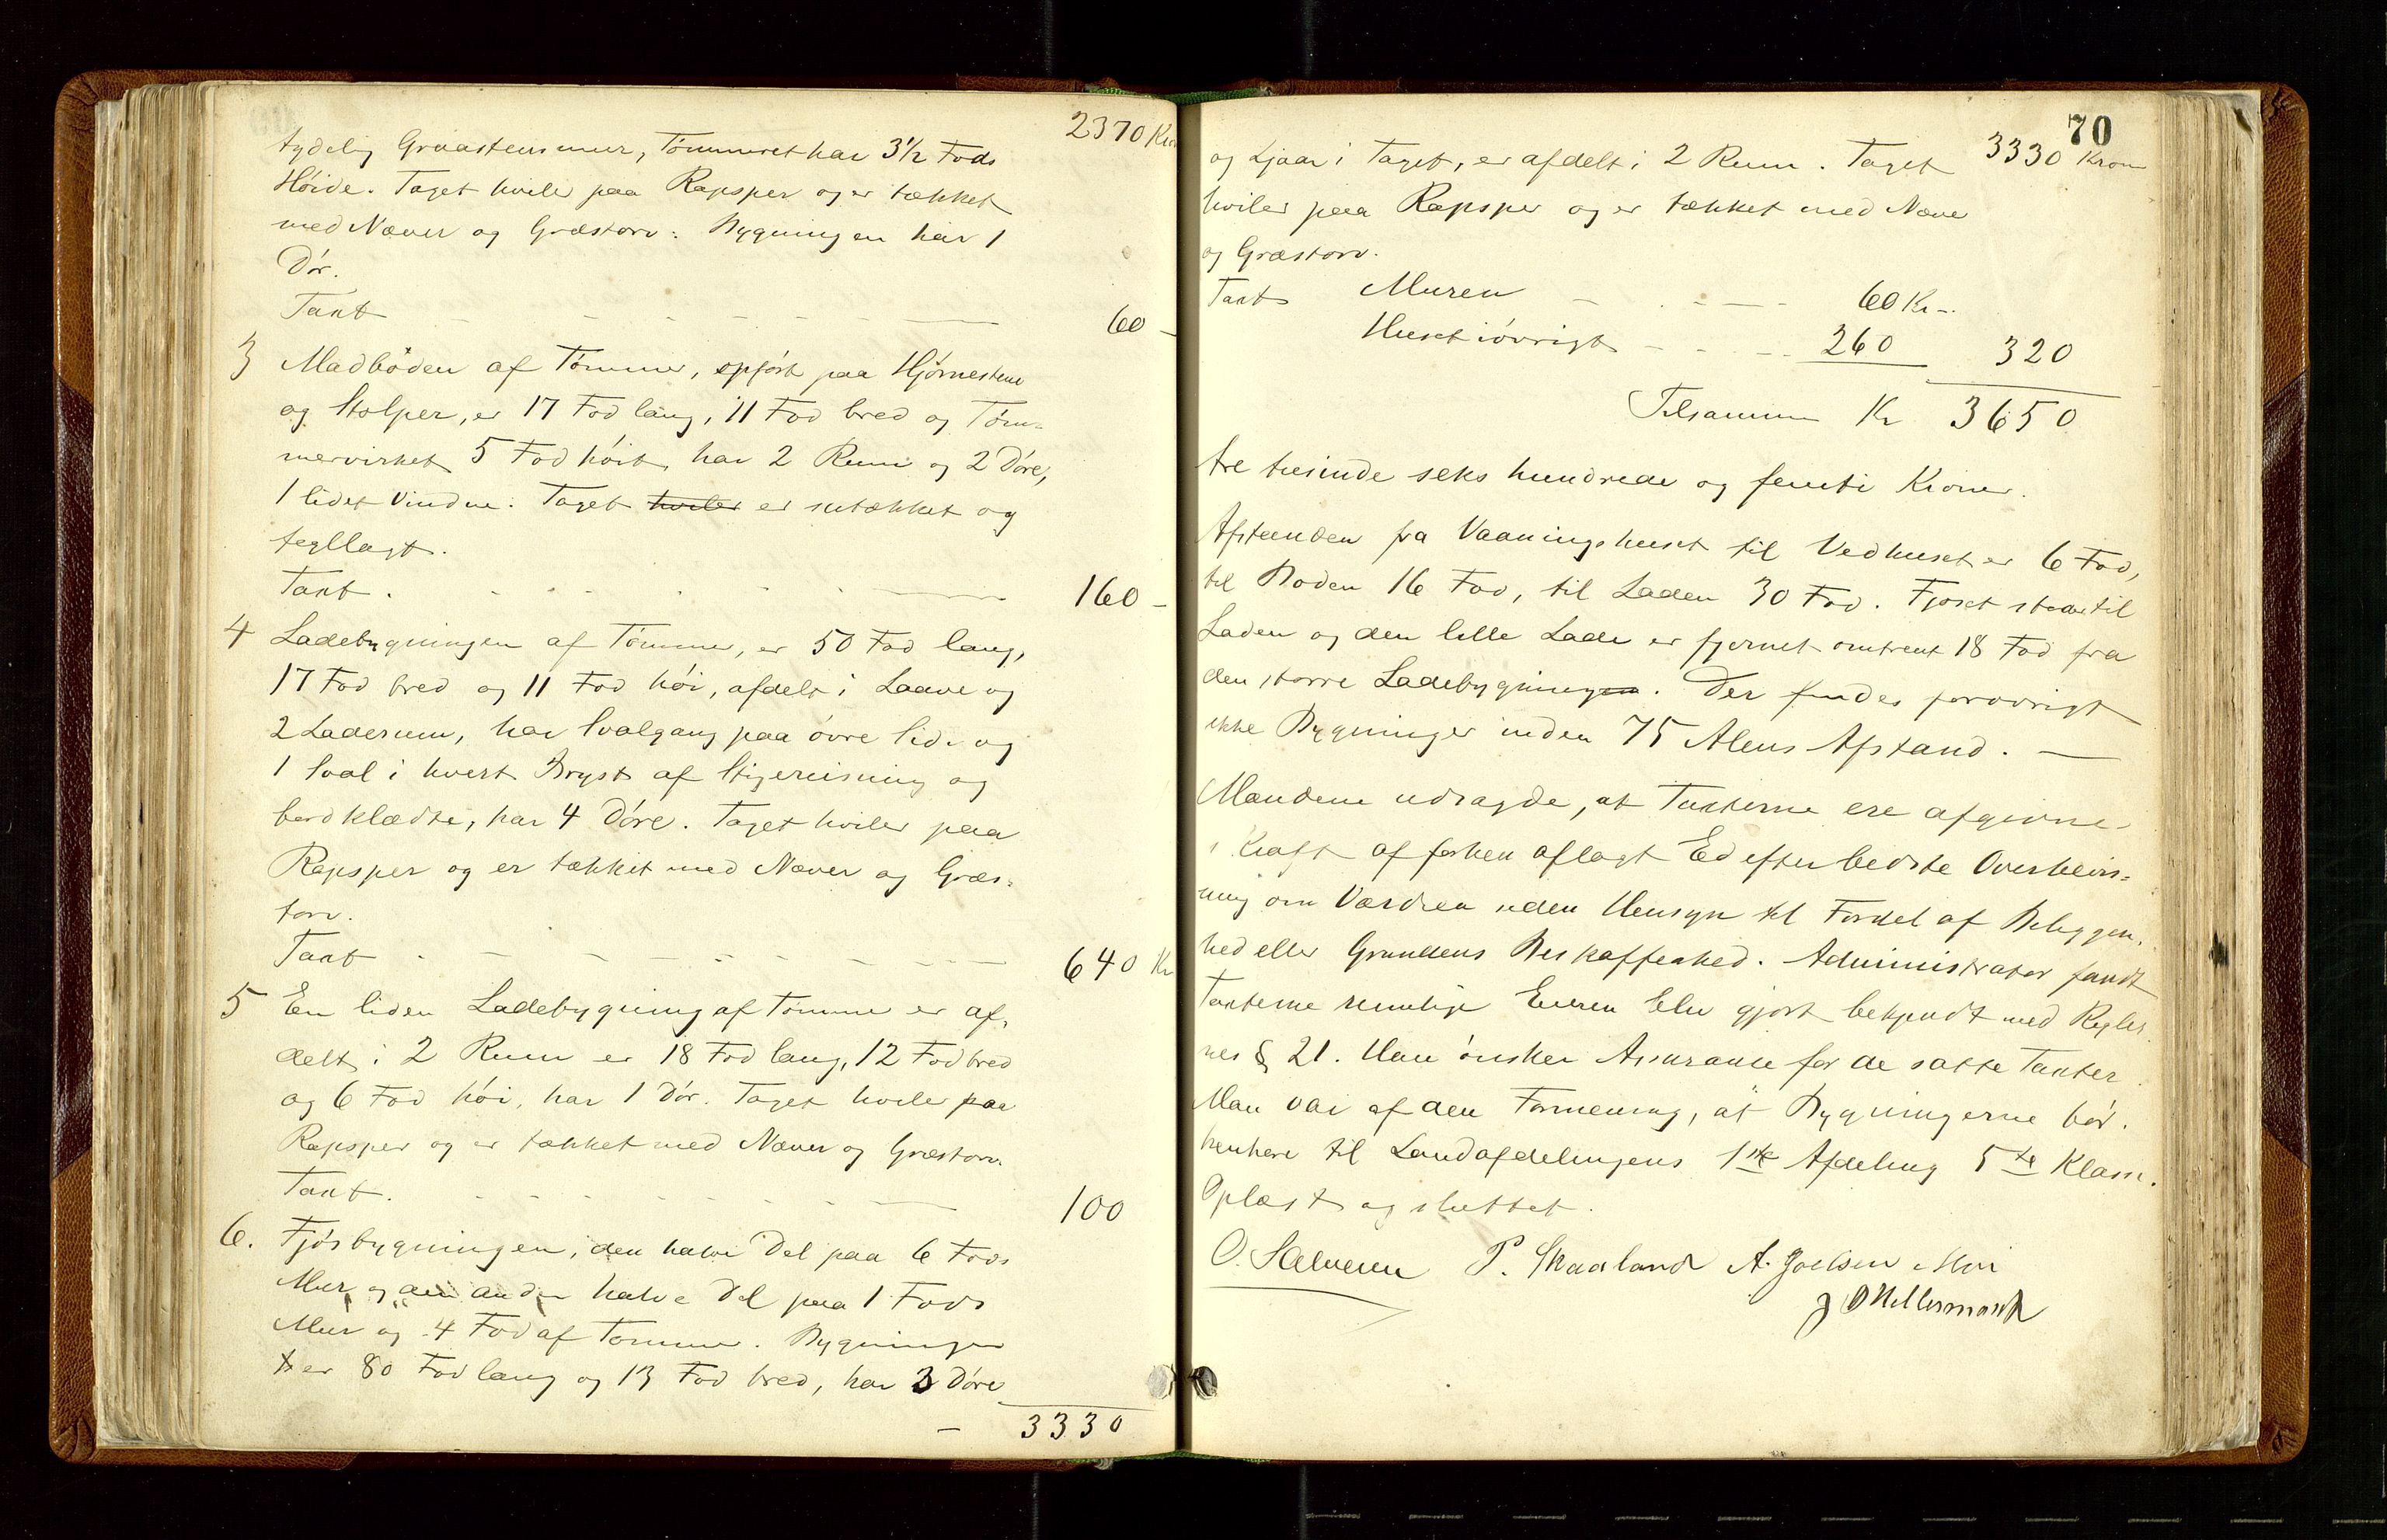 2370 Kr
tydelig Graastensmur, Tømmeret har 3 1/2 Fods
Høide. Taget hviler paa Rapsper og er tækket
med Næver og Græstorv. Bygningen har 1
Dør.
Taxt 60 -
3 Madboden af Tømmer, opført paa Hjørnestene
og Stolper, er 17 Fod lang, 11 Fod bred og Tøm-
mervirket 5 Fod høit, har 2 Rum og 2 Døre,
1 lidet Vindue. Taget hviler er sutækket og
tegllagt.
Taxt. 160 -
4 Ladebygningen af Tømmer, er 50 Fod lang,
17 Fod bred og 11 Fod høi, afdelt i Laave og
2 Laderum, har Svalgang paa øvre Side og
1 Sval i hvert Bryst af Stigereisning og
bordklædte, har 4 Døre. Taget hviler paa
Rapsper og er tækket med Næver og Græs-
torv.
Taxt 640 Kr
5 En liden Ladebygning af Tømmer er af-
delt i 2 Rum er 18 Fod lang, 12 Fod bred
og 6 Fod høi, har 1 Dør. Taget hviler paa
Rapsper og er tækket med Næver og Græstorv.
Taxt. 100
6. Fjøsbygningen, den halve Del paa 6 Fods
Mur og den anden halve Del paa 1 Fods
Mur og 4 Fod af Tømmer. Bygningen
er 80 Fod lang og 13 Fod bred, har 3 Døre
- 3330
70
og Ljaar i Taget, er afdelt i 2 Rum. Taget 3330 Kroner
hviler paa Rapsper og er tækket med Næver
og Græstorv.
Taxt Muren 60 Kr -
Huset iøvrigt 260 320
Tilsammen Kr 3650
tre tusinde seks hundrede og femti Kroner.
Afstanden fra Vaaningshuset til Vedhuset er 6 Fod,
til Boden 16 Fod, til Laden 30 Fod. Fjøset støder til
Laden og den lille Lade er fjernet omtrent 18 Fod fra
den større Ladebygningen. Der findes forøvrigt
ikke Bygninger inden 75 Alens Afstand. -
Mændene udsagde, at Taxterne ere afgivne
i Kraft af forhen aflagt Ed efter bedste Overbevis-
ning om Værdien uden Hensyn til Fordel af Beliggen-
hed eller Grundens Beskaffenhed. Administrator fandt
Taxterne rimelige Eieren blev gjort bekjendt med Regler-
nes § 21. Han ønsker Assurance for de satte Taxter.
Man var af den Formening, at Bygningerne bør
henhøre til Landafdelingens 1ste Afdeling 5te Klasse.
Oplæst og sluttet.
O. P. Skaaland A. Joelsen Moi